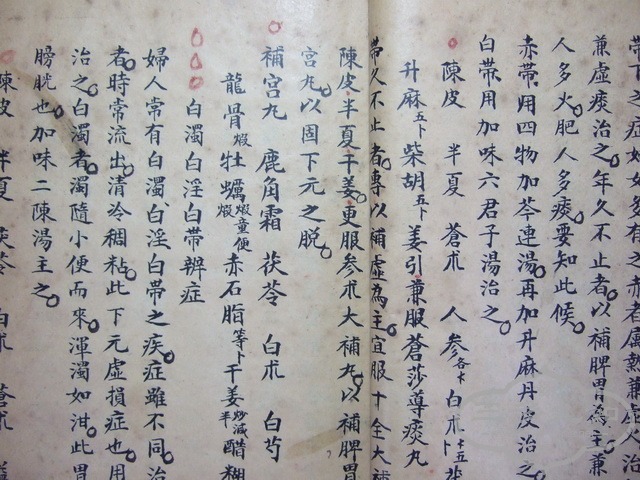 帶下之症婦女多有之赤者屬熱兼虛火治
兼虛痰治之年久不止者以補脾胃為主兼
人多火肥人多痰要知此候
赤帶用四物加芩連湯再加升麻丹皮治之
白帶用加味六君子湯治之
陳皮 半夏 蒼朮 人參各卜 白朮卜十五
升麻五卜柴胡五卜姜引兼服蒼莎導痰丸
帶久不止者專以補虛為主宜服十全大補
陳皮半夏干姜更服參朮大補丸以補脾胃
宮丸以固下元之脫
補宮丸 鹿角霜 茯苓 白朮 白芍
龍骨煅牡蠣煅童便煅赤石脂等卜干姜炒減半醋糊
白濁白淫白帶辨症
婦人常有白濁白淫白帶之疾症雖不同治
者時常流出清冷稠粘此下元虛損症也用
治之白濁者濁隨小便而來渾濁如泔此胃
膀胱也加味二陳湯主之
陳皮 半夏 茯苓 白朮 蒼朮